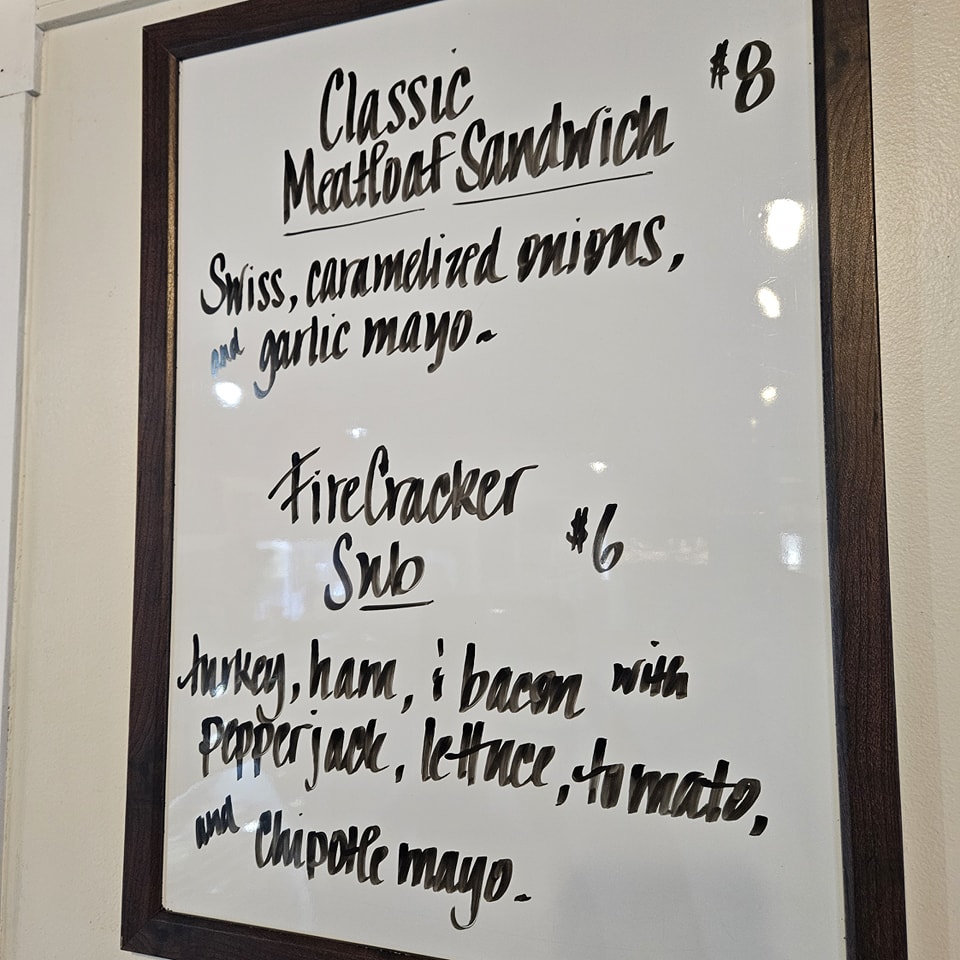 Classic $8
Meatloaf Sandwich
Swiss, caramelized onions,
and garlic mayo.
FireCracker
Sub $6
turkey, ham, & bacon with
pepperjack, lettuce, tomato,
and Chipotle mayo.